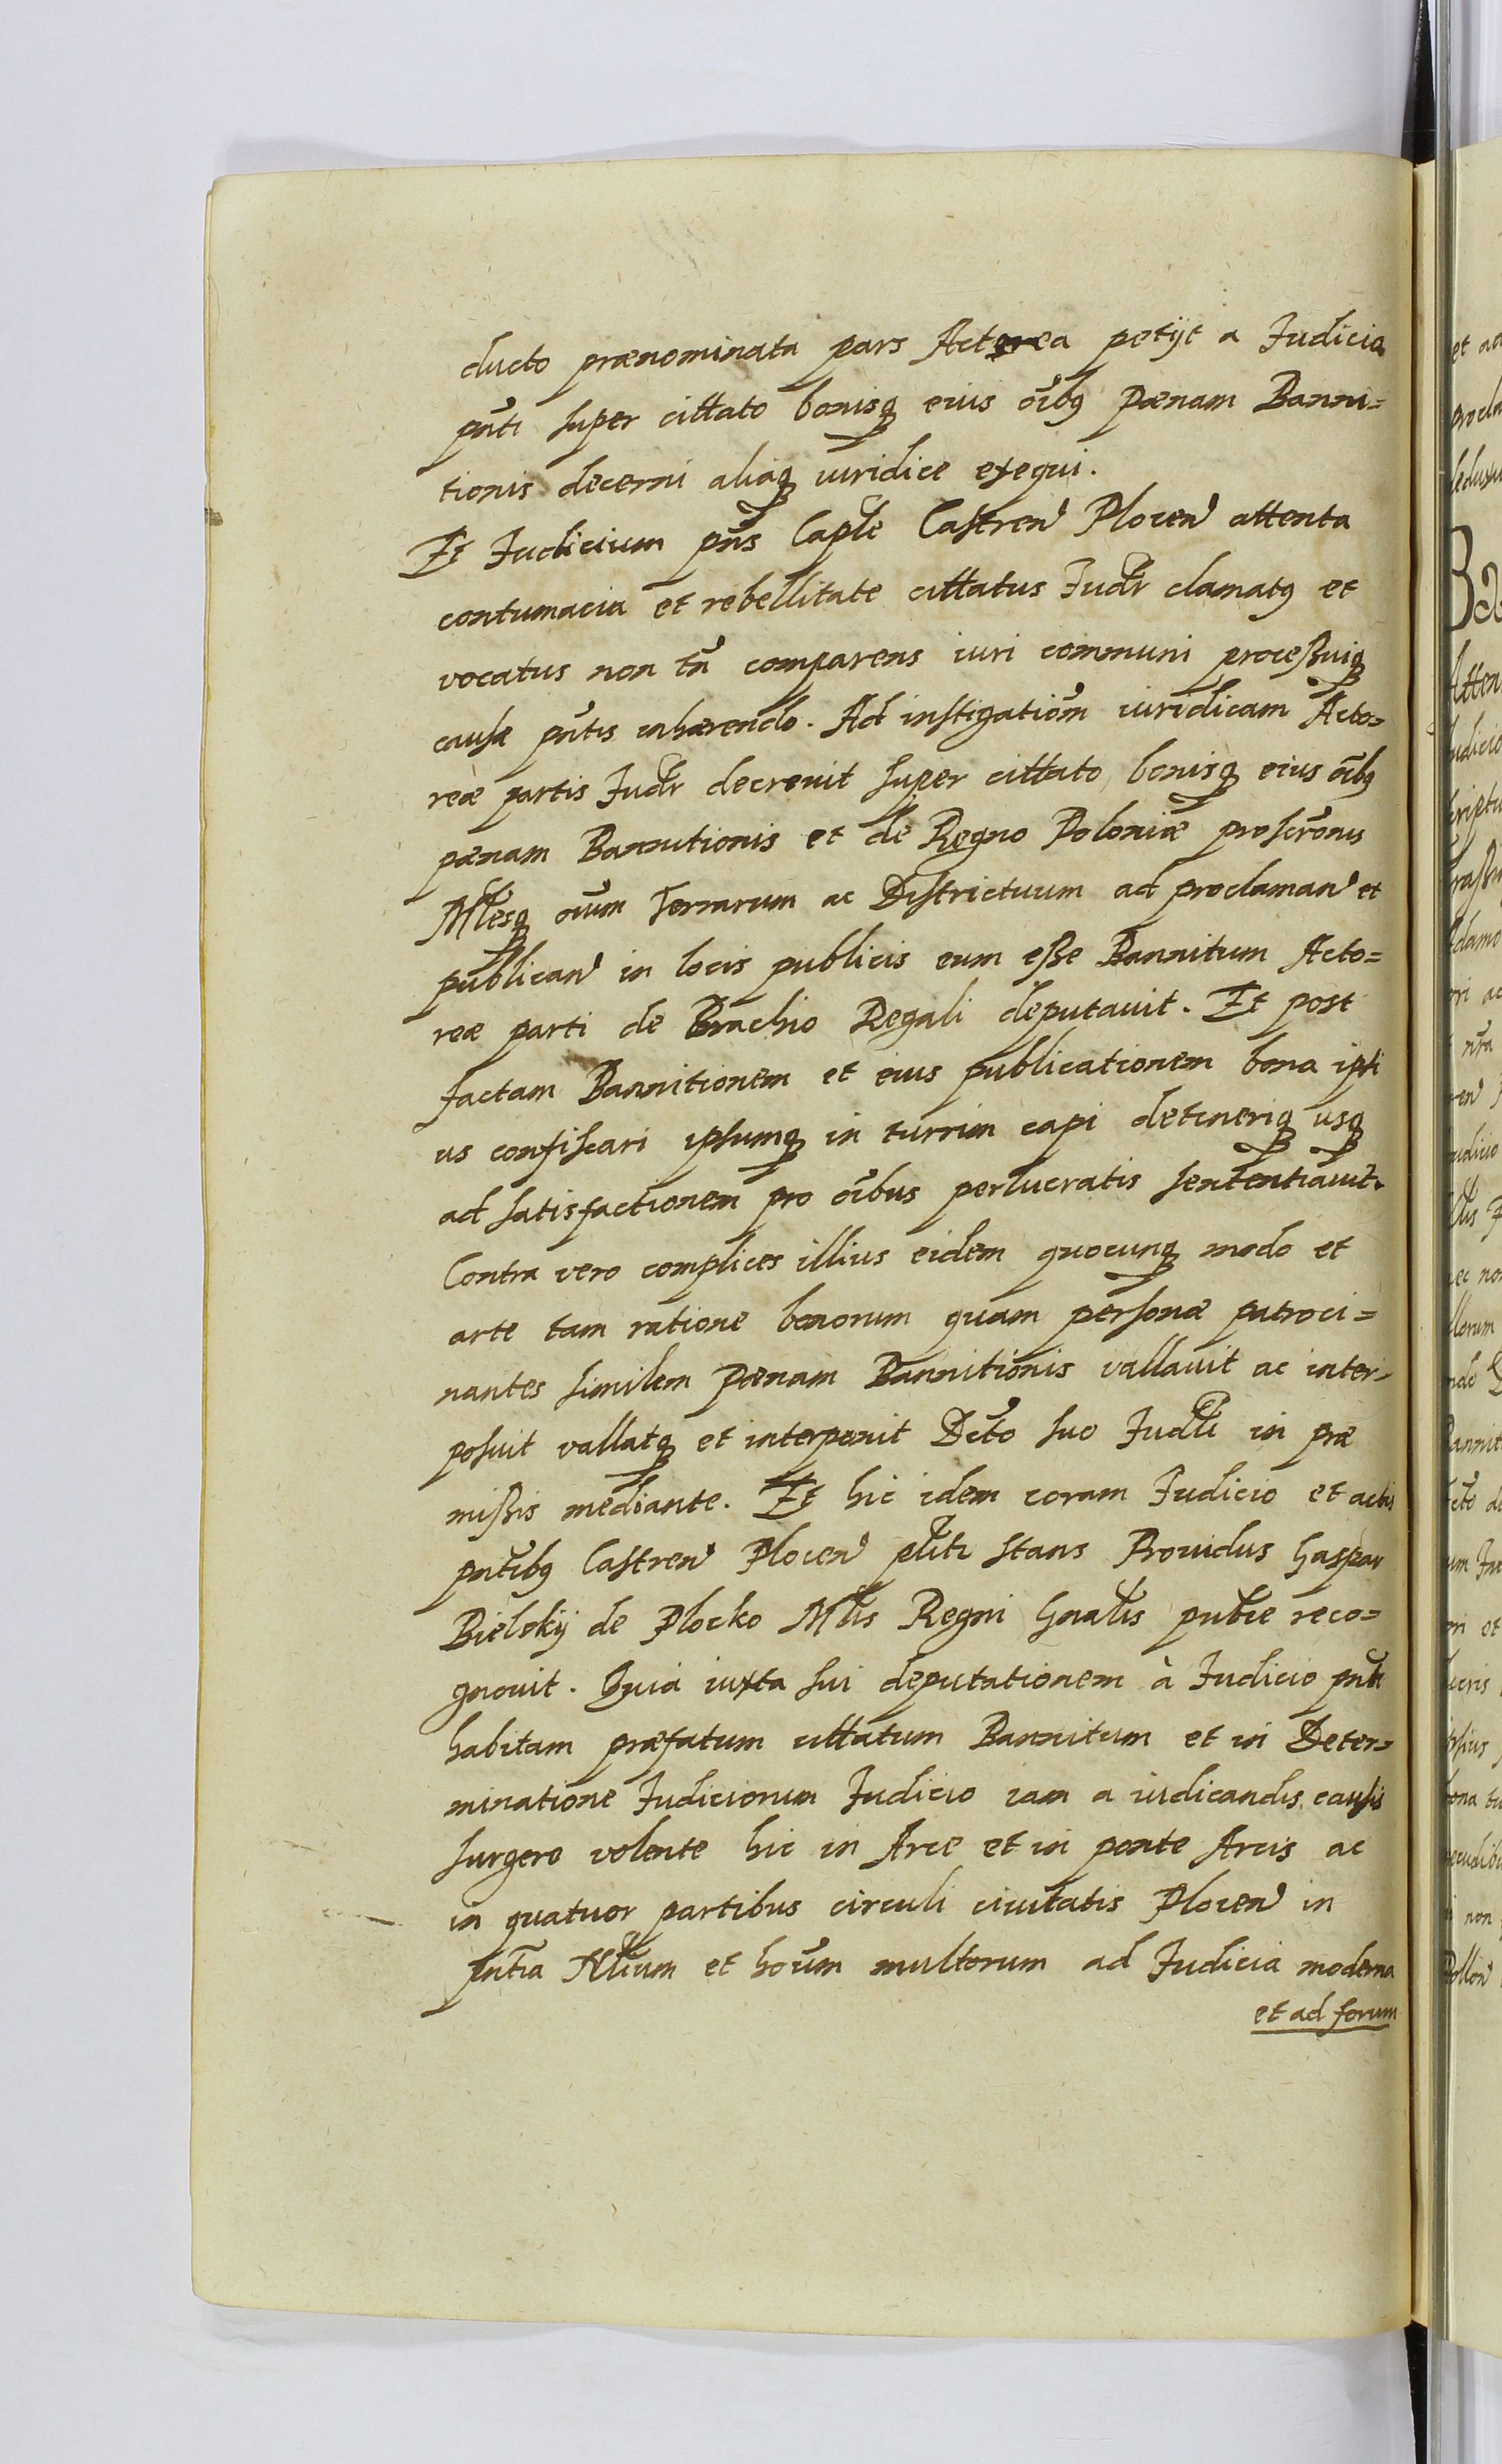 ducto prænominata pars Actorea petijt a Judicio
pn̄ti super cittato bonisq3 eius oībꝰ Pænam Banni=
tionis decerni aliaq3 iuridice exequi.
Et Judicium pn̄s Caple Castren Plocen attenta
contumacia et rebellitate cittatus Judr clamatꝰ et
vocatus non tn̄ comparens iuri communi proceßuiq3
causæ pn̄tis inhærendo. Ad instigatiōm iuridicam Acto=
reæ partis Judr decrevit super cittato bonisq3 eius oībꝰ
pænam Bannitionis et de Regno Poloniæ proscrōnis
Mlesq3 oīum Terrarum ac Districtuum ad proclaman et
publican in locis publicis eum eße Bannitum Acto=
reæ parti de Brachio Regali deputavit. Et post
factam Bannitionem et eius publicationem bona ipsi
us confiscari ipsumq3 in turrim capi detineriq3 usq3
ad satisfactionem pro oībus perlucratis sententiavit.
Contra vero complices illius eidem quocunq3 modo et
arte tam ratione bonorum quam personæ patroci=
nantes similem Pænam Bannitionis vallavit ac inter=
posuit vallatq3 et interponit Dcto suo Judli in præ
mißis mediante. Et hic idem coram Judicio et actis
pn̄tibꝰ Castren Plocen plīti stans Providus Gaspar
Bielskij de Plocko Mlis Regni Gnalis publce reco=
gnovit. Quia iuxta sui deputationem à Judicio pn̄ti
habitam præfatum cittatum Bannitum et in Deter=
minatione Judiciorum Judicio iam a iudicandis causis
surgere volente hic in Arce et in ponte Arcis ac
in quatuor partibus circuli civitatis Plocen in
pn̄tia Nlium et hōum multorum ad Judicia moderna
et ad forum